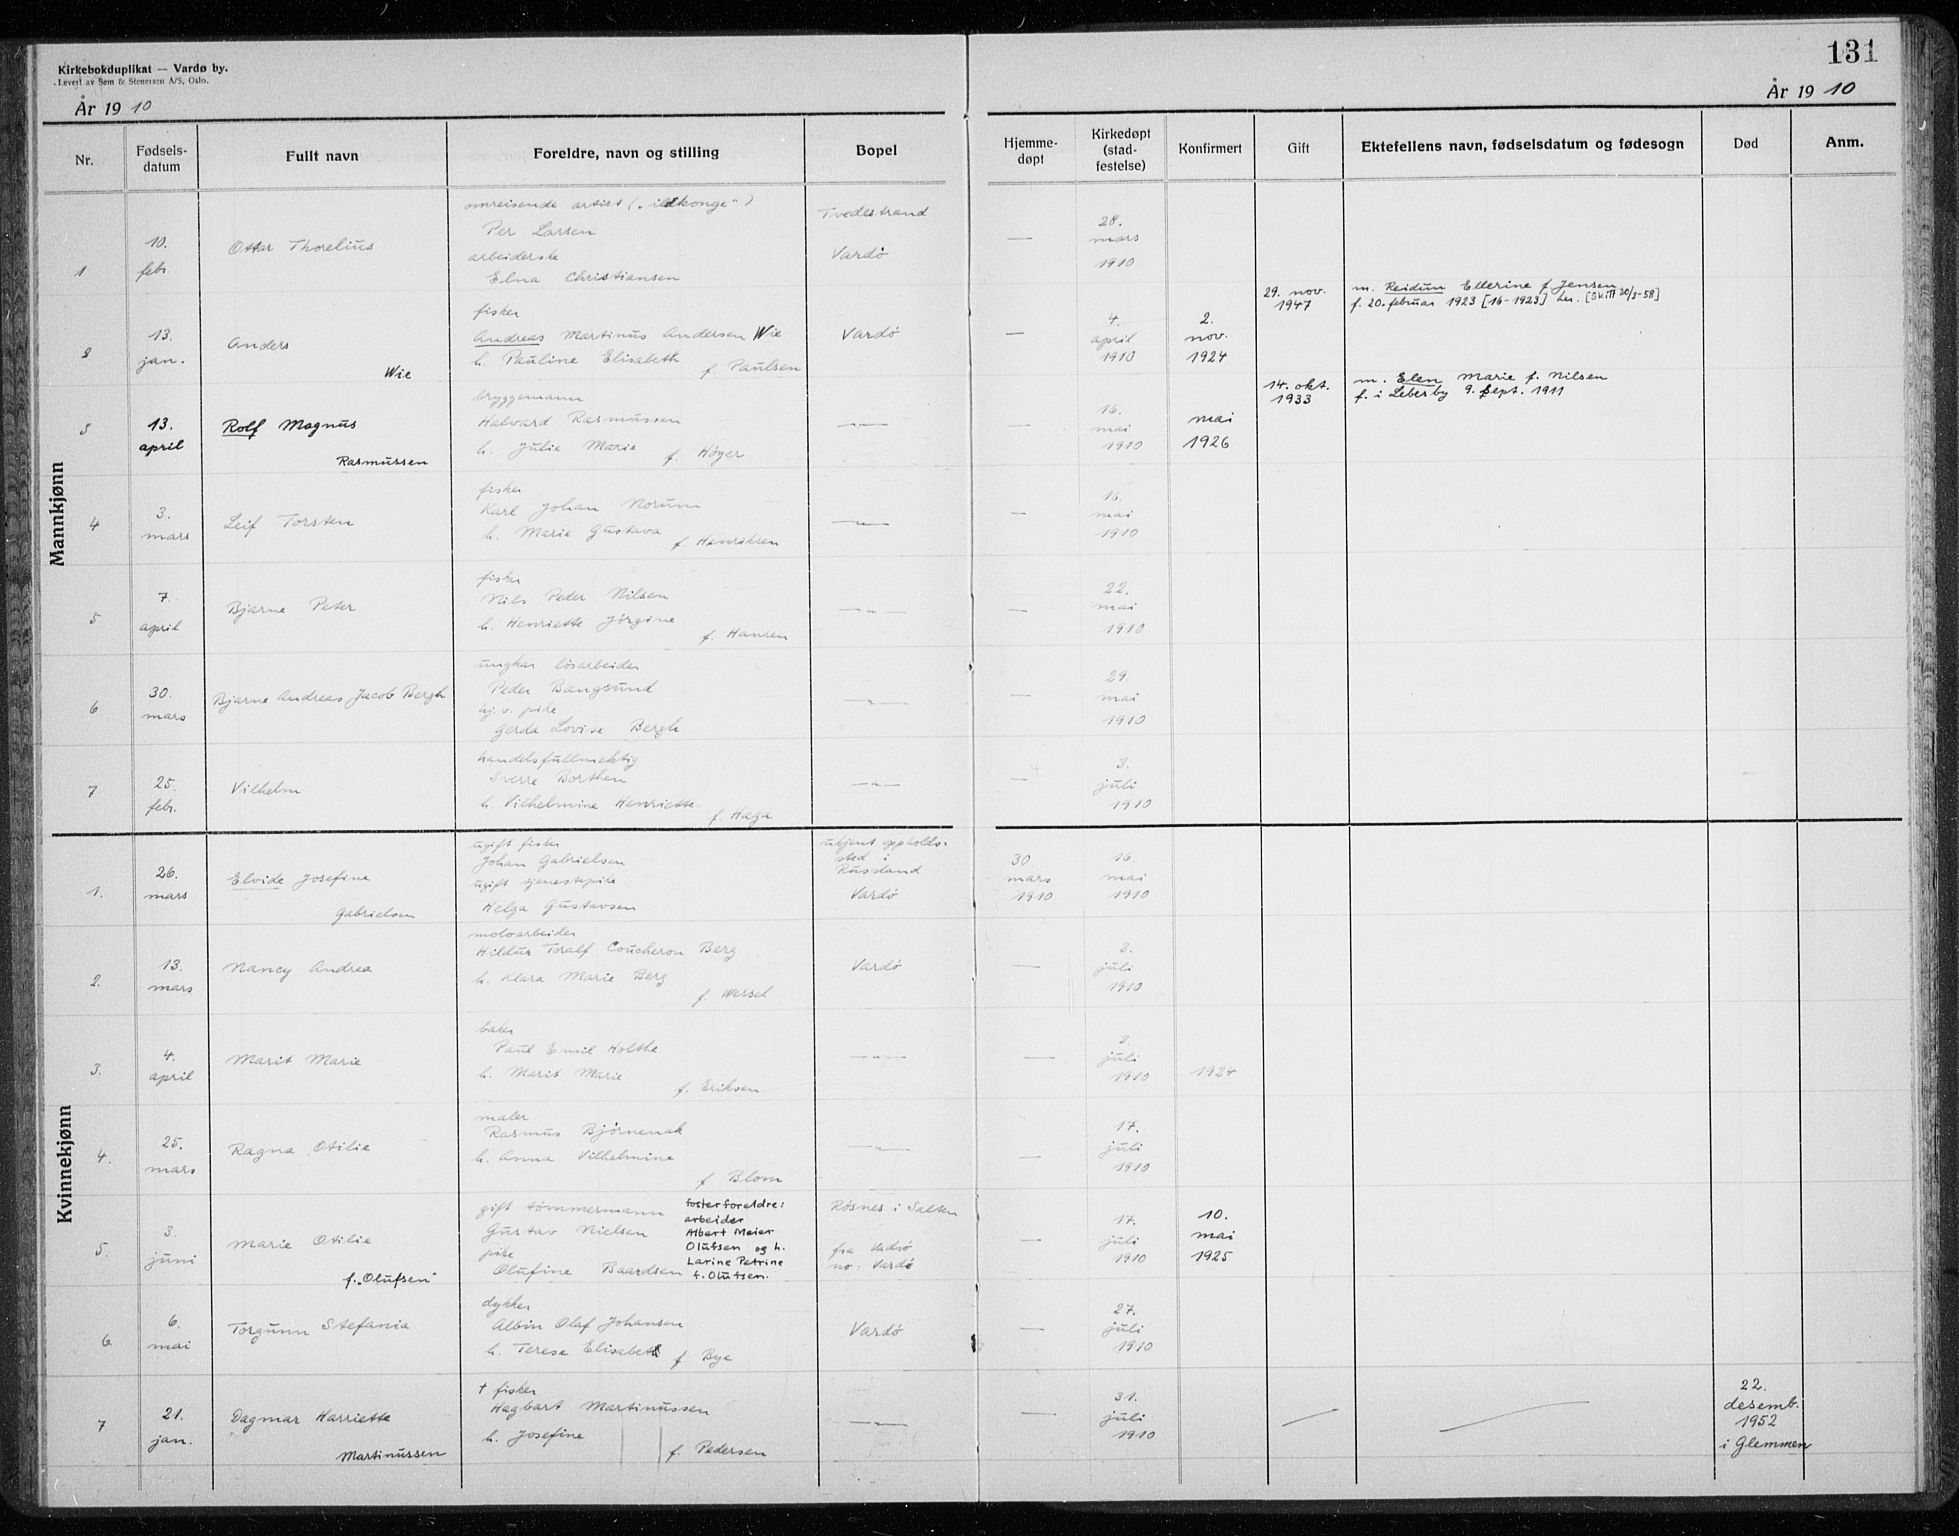 Kirkebokduplikat — Vardø by.
Levert av Sem & Stenersen A/S, Oslo.
131
År 19 10
År 19 10
Nr.
Fødsels-
datum
Fullt navn
Foreldre, navn og stilling
Bopel
Hjemme-
døpt
Kirkedøpt
(stad-
festelse)
Konfirmert
Gift
Ektefellens navn, fødselsdatum og fødesogn
Død
Anm.
Mannkjønn
1
10.
febr.
Ottar Thorelius
omreisende artist („ildkonge")
Per Larsen
arbeiderske
Elna Christiansen
Tvedestrand
Vardø
—
28.
mars
1910
2
13.
jan.
Anders
Wie
fisker
Andreas Martinus Andersen Wie
h. Pauline Elisabeth
f. Paulsen
Vardø
—
4.
april
1910
2.
nov.
1924
29. nov.
1947
m. Reidun Ellerine f. Jensen
f. 20. februar 1923 [16-1923] [Skilt 20/3-58]
3
13.
april
Rolf Magnus
Rasmussen
bryggemann
Halvard Rasmussen
h. Julie Marie
f. Høyer
—"—
—
16.
mai
1910
mai
1926
14. okt.
1933
m. Elen Marie f. Nilsen
f. i Lebesby 9. sept. 1911
4
3.
mars
Leif Torsten
fisker
Karl Johan Norum
h. Marie Gustava
f. Henriksen
—"—
—
16.
mai
1910
5
7.
april
Bjarne Peter
fisker
Nils Peder Nilsen
h. Henriette Jørgine
f. Hansen
—"—
—
22.
mai
1910
6
30.
mars
Bjarne Andreas Jacob Bergh
ungkar løsarbeider
Peder Bangsund
hj.v. pike
Gerda Lovise Bergh
—"—
—
29.
mai
1910
7
25.
febr.
Vilhelm
handelsfullmektig
Sverre Borthen
h. Vilhelmine Henriette
f. Haga
—"—
—
3.
juli
1910
Kvinnekjønn
1.
26.
mars
Elvide Josefine
Gabrielsen
ugift fisker
Johan Gabrielsen
ugift tjenestepike
Helga Gustavsen
ukjent oppholds-
sted i
Russland
Vardø
30.
mars
1910
16.
mai
1910
2.
13.
mars
Nancy Andrea
moloarbeider
Hildur Toralf Coucheron Berg
h. Klara Marie Berg
f. Wessel
Vardø
—
3.
juli
1910
3.
4.
april
Marit Marie
baker
Paul Emil Holthe
h. Marit Marie
f. Eriksen
—"—
—
3.
juli
1910
1924
4.
25.
mars
Ragna Otilie
maler
Rasmus Bjørnenak
h. Anna Vilhelmine
f. Blom
—"—
—
17.
juli
1910
5.
3.
juni
Marie Otilie
f. „Olufsen"
gift tømmermann
Gustav Nielsen
pike
Olufine Baardsen
fosterforeldre:
arbeider
Albert Meier
Olufsen og h.
Larine Petrine
f. Olufsen.
Røsnes i Salten
fra Vadsø
no. Vardø
17.
juli
1910
10.
mai
1925
6
6.
mai
Torgunn Stefania
dykker
Albin Olaf Johansen
h. Terese Elisabeth
f. Bye
Vardø
—
27.
juli
1910
7
21.
jan.
Dagmar Harriette
Martinussen
† fisker
Hagbart Martinussen
h. Josefine
f. Pedersen
—"—
—
31.
juli
1910
22.
desemb.
1952
i Glemmen